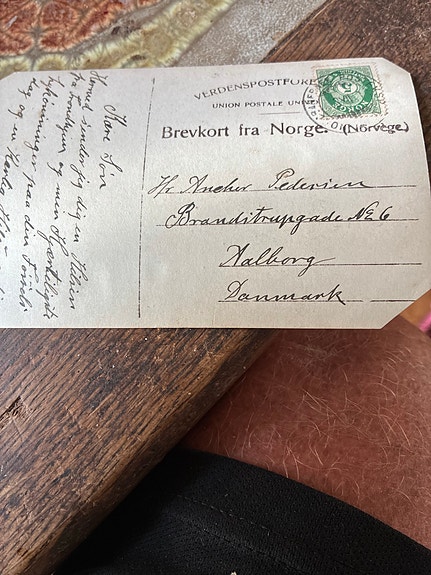 VERDENSPOSTFORE
UNION POSTALE UNI
Brevkort fra Norge. (Norvège.)
Hr Ancher Pedersen
Branditrupgade No 6
Aalborg
Danmark
Kære Søn
Hermed sender jeg dig en Hilsen
fra Trondhjem og min Hjærteligste
Lykønskninger paa din Fødsels
dag og en
NORGE
5